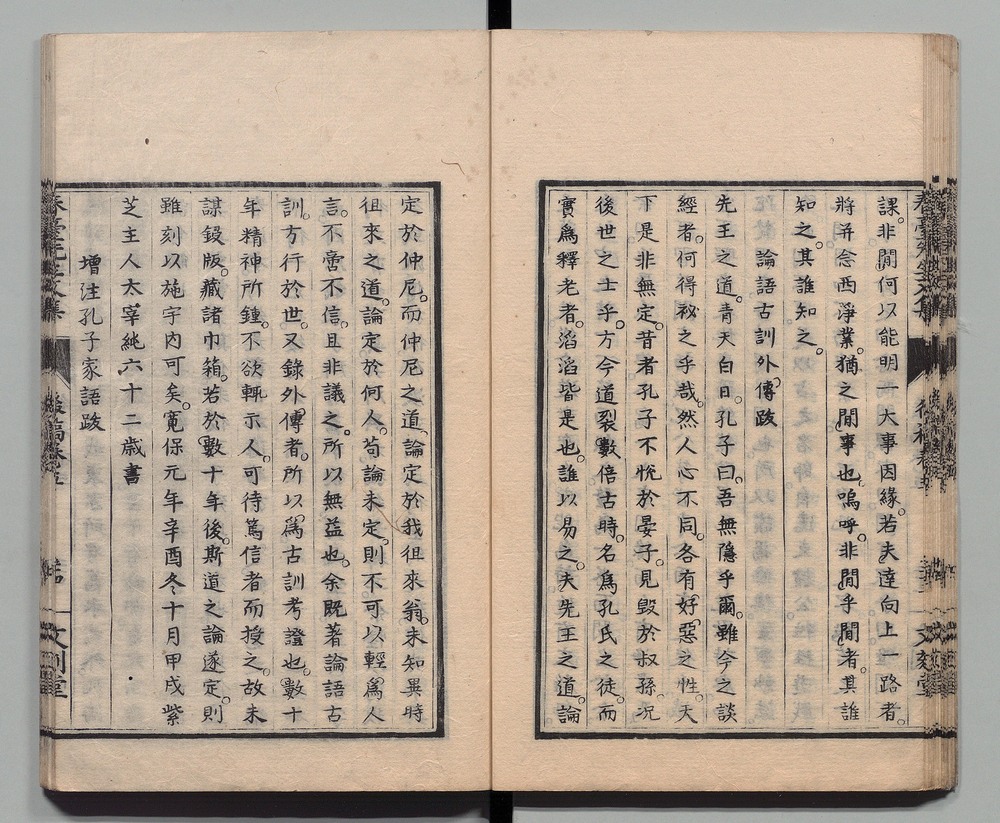 課。非閒何以能明一大事因緣。若夫達向上一路者。
將幷念西淨業。猶之閒事也。嗚呼。非閒乎閒者。其誰
知之。其誰知之。
論語古訓外傳跋
先王之道。青天白日。孔子曰。吾無隱乎爾。雖今之談
經者。何得秘之乎哉。然人心不同。各有好惡之性。天
下是非無定。昔者孔子不悅於晏子。見毀於叔孫。況
後世之士乎。方今道裂。數倍古時。名爲孔氏之徒。而
實爲釋老者。滔滔皆是也。誰以易之。夫先王之道。論
定於仲尼。而仲尼之道。論定於我徂來翁。未知異時
徂來之道。論定於何人。苟論未定。則不可以輕爲人
言。不啻不信。且非議之。所以無益也。余既著論語古
訓。方行於世。又錄外傳者。所以爲古訓考證也。數十
年精神所鍾。不欲輒示人。可待篤信者而授之。故未
謀鋟版。藏諸巾箱。若於數十年後。斯道之論遂定。則
雖刻以施宇內可矣。寬保元年辛酉冬十月甲戌紫
芝主人太宰純六十二歲書
增注孔子家語跋
春臺先生文集
後稿卷五
文刻堂